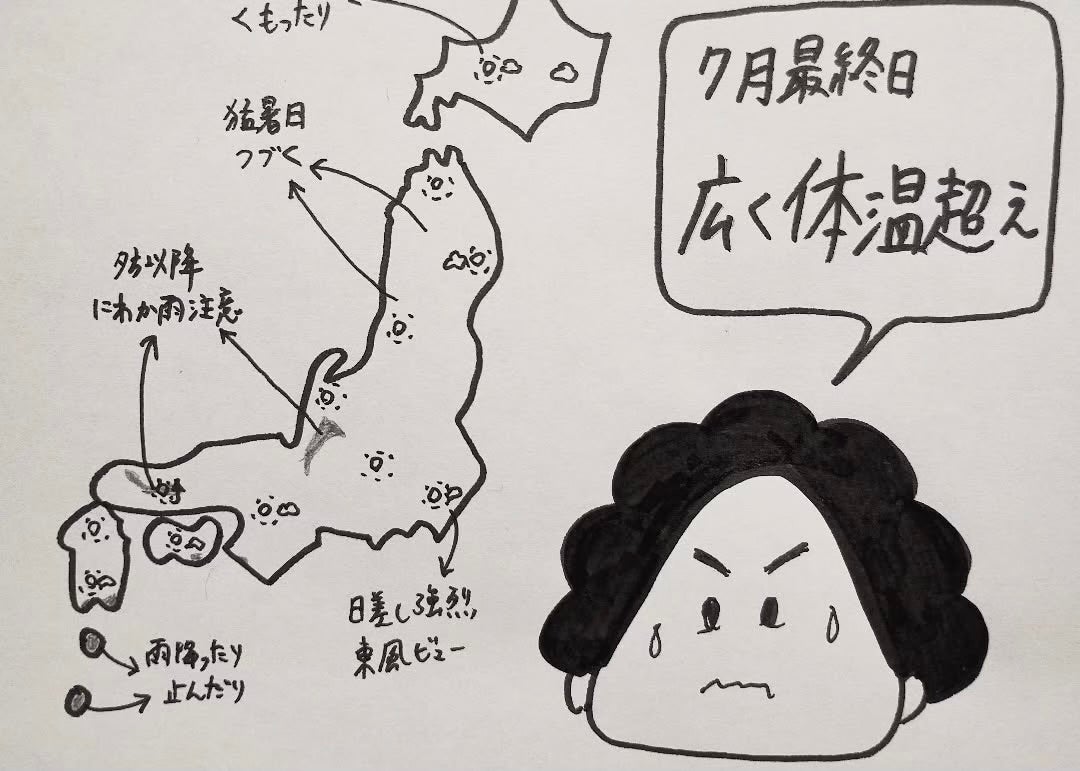 くもったり
7月最終日
広く体温超え
猛暑日
つづく
夕方以降
にわか雨注意
日差し強烈
東風ビュー
雨降ったり
止んだり